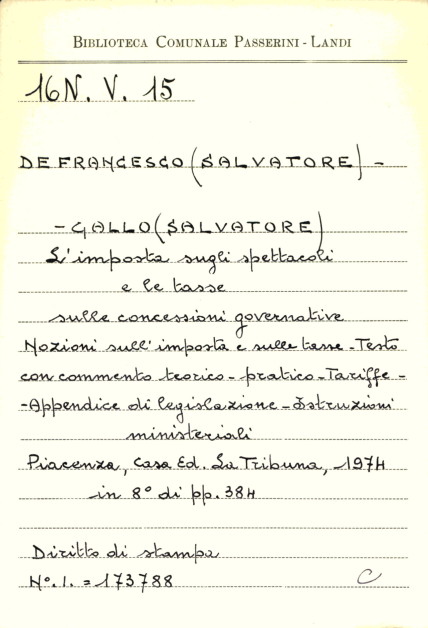 BIBLIOTECA COMUNALE PASSERINI - LANDI
16N. V. 15
DE FRANCESCO (SALVATORE) -
- GALLO (SALVATORE)
L'imposta sugli spettacoli
e le tasse
sulle concessioni governative
Nozioni sull'imposta e sulle tasse - Testo
con commento teorico - pratico - Tariffe -
- Appendice di legislazione - Istruzioni
ministeriali
Piacenza, Casa Ed. La Tribuna, 1974
in 8° di pp. 384
Diritto di stampa
N°. I. = 173788
C